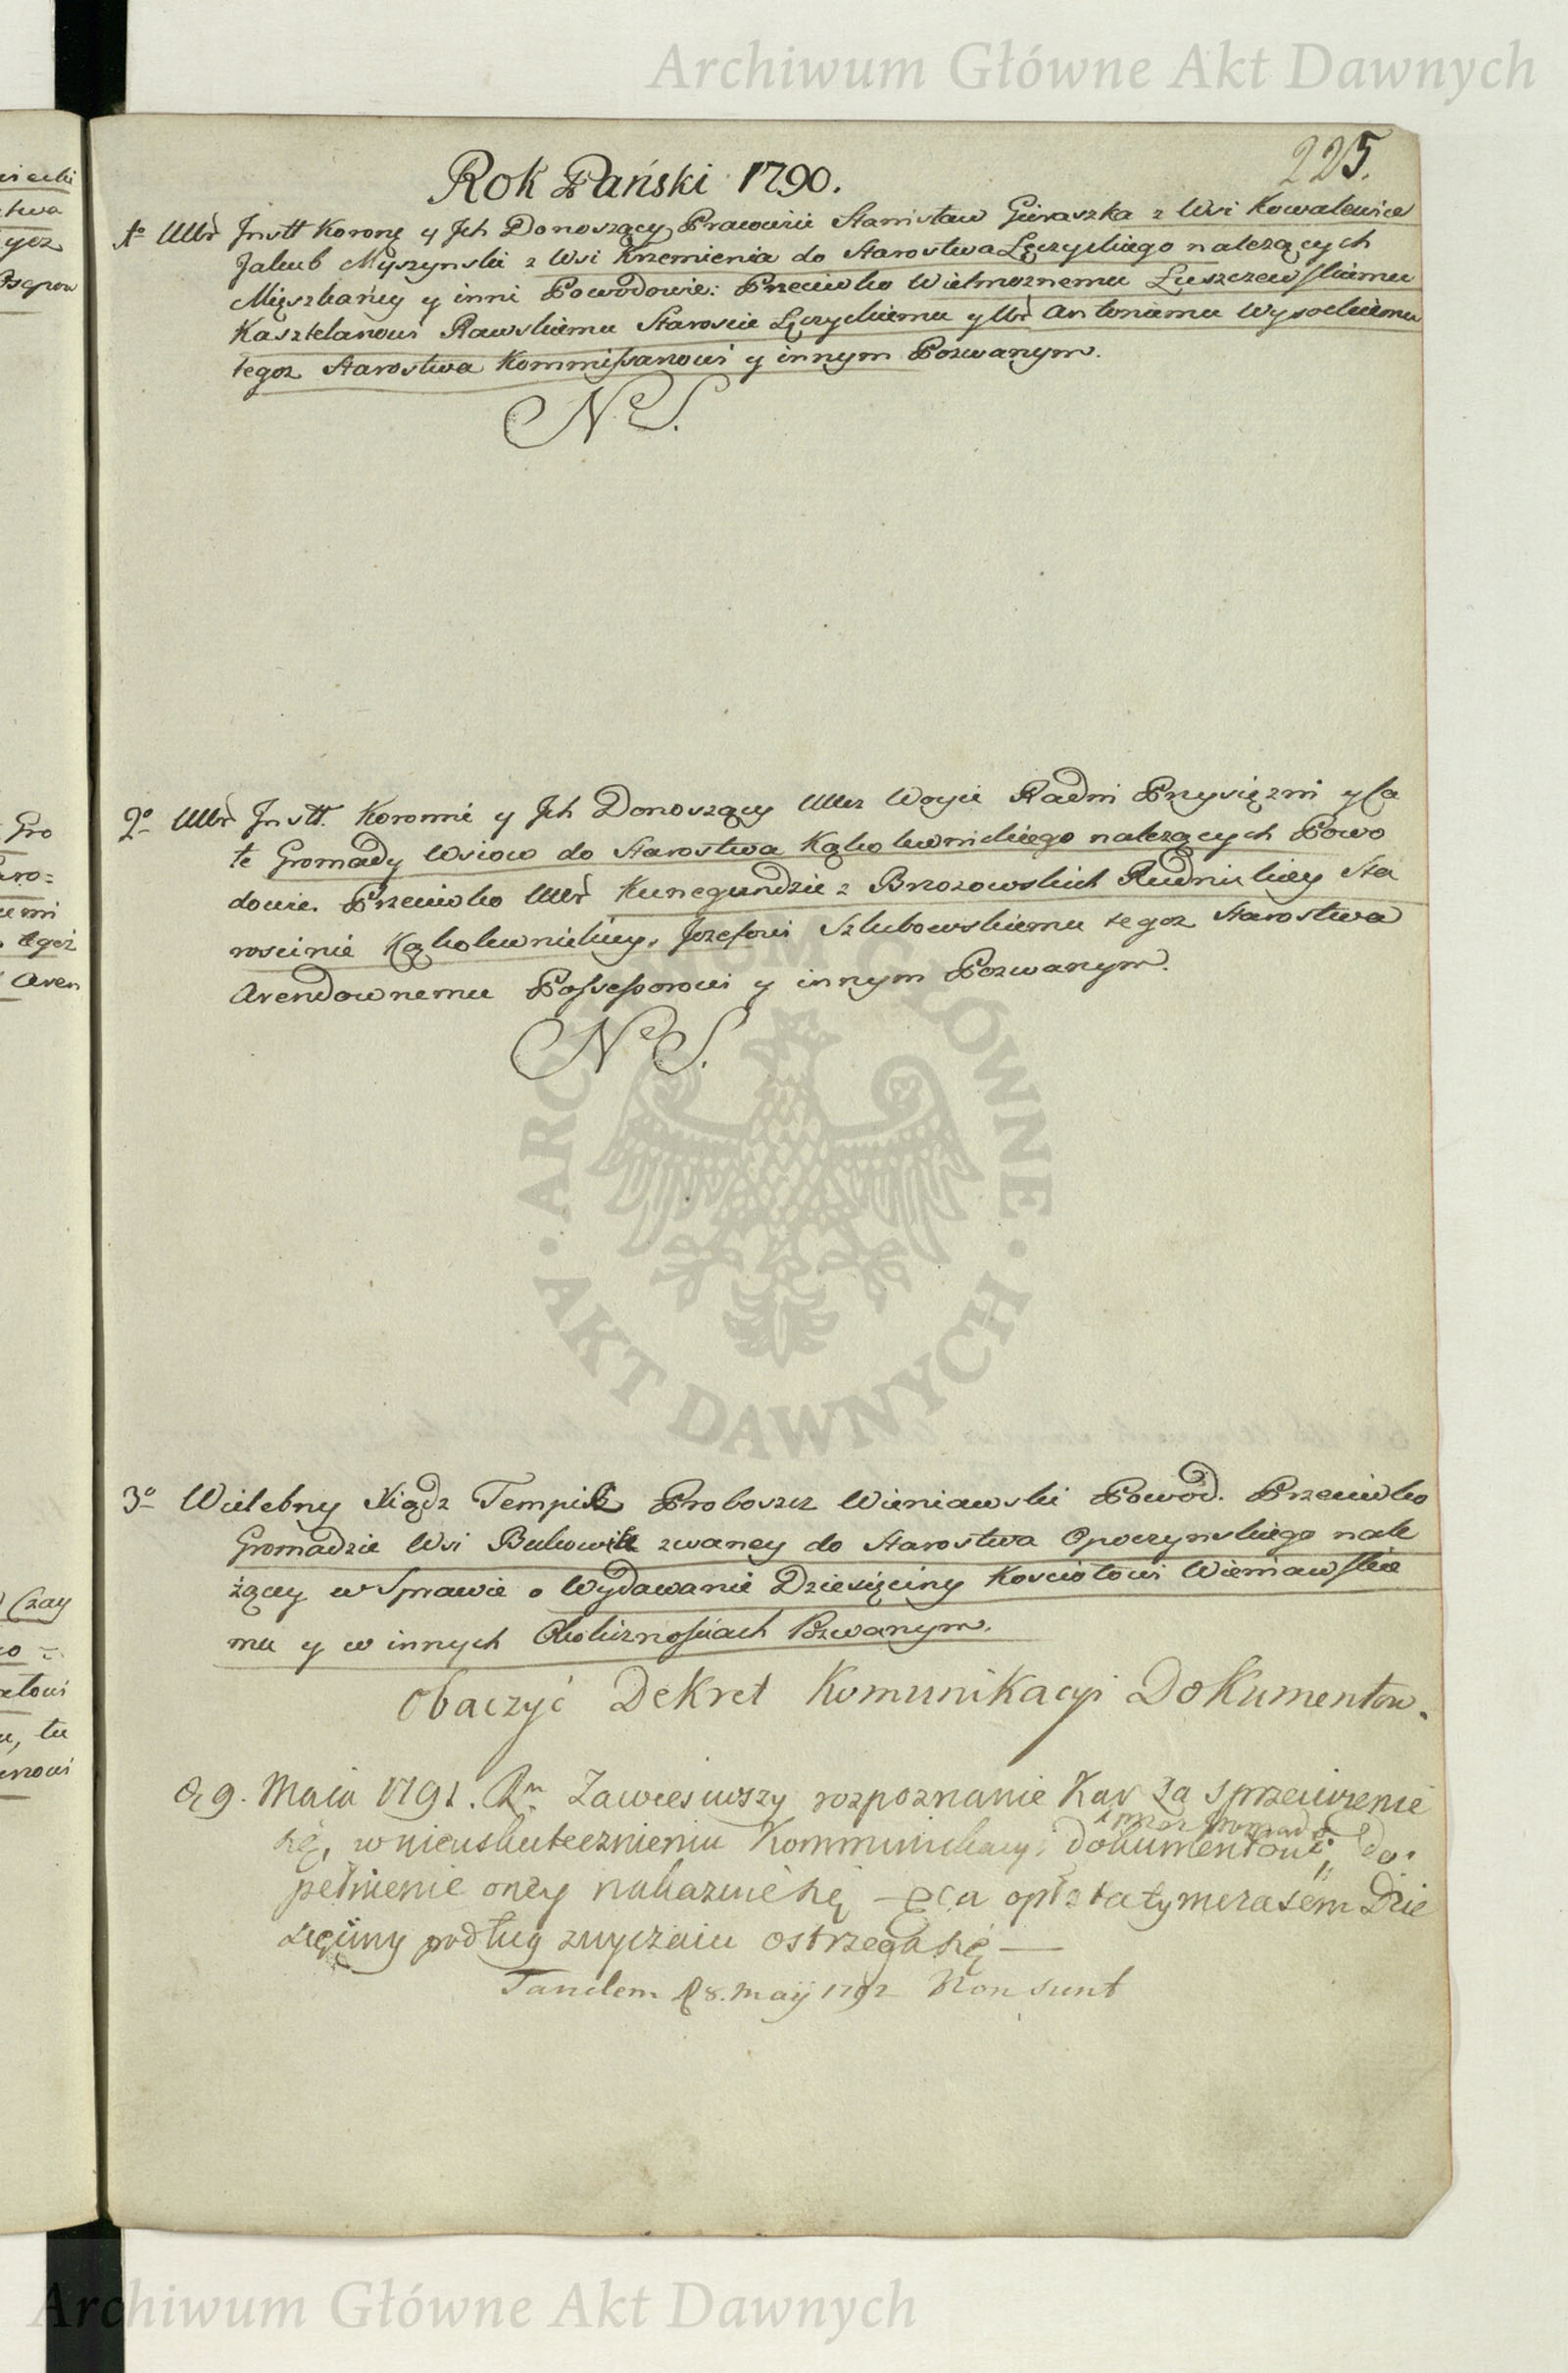 Archiwum Główne Akt Dawnych
225.
Rok Pański 1790.
1o Ur Instt Korony y Ich Donoszący Pracowici Stanisław Gieraszka z Wsi Kowalewice
Jakub Myszynski z Wsi Krzemienia do Starostwa Łęczyckiego należących
Mięszkańcy y inni Powodowie: Przeciwko Wielmoznemu Luszczewskiemu
Kasztelanowi Rawskiemu Staroscie Łęczyckiemu y Ur Antoniemu Wysockiemu
tegoz Starostwa Kommissarzowi y innym Pozwanym.
NS.
2o Ur Instt. Koronni y Ich Donoszący Woyci Radni Przysięzni y Ca
łe Gromady Wsiow do Starostwa Kąkolewnickiego należących Powo
dowie. Przeciwko Ur Kunegundzie z Brzozowskich Rudnickiey Sta
roscinie Kąkolewnickiey, Jozefowi Szlubowskiemu tegoz Starostwa
Arendownemu Possessorowi y innym Pozwanym.
NS.
3o Wielebny Xiądz Tempis Proboszcz Wieniawski Powod. Przeciwko
Gromadzie Wsi Bukowiec zwaney do Starostwa Opoczynskiego nale
żącey w Sprawie o Wydawanie Dziesięciny Kosciołowi Wieniawskie
mu y w innych Okolicznosciach Pozwanym.
Obaczyć Dekret Komunikacyi Dokumentow.
9. Maia 1791. Zawiesiwszy rozpoznanie Kar za sprzeciwienie
się, w nieuskutecznieniu Kommunikacyi dokumentow
przez Gromadę do-
pełnienie oney nakazuie się opłata tymczasem Dzie
sięciny podług zwyczaiu ostrzega się —
Tandem 8. Maij 1792 Non sunt
ARCHIWUM GŁÓWNE • AKT DAWNYCH •
Archiwum Główne Akt Dawnych